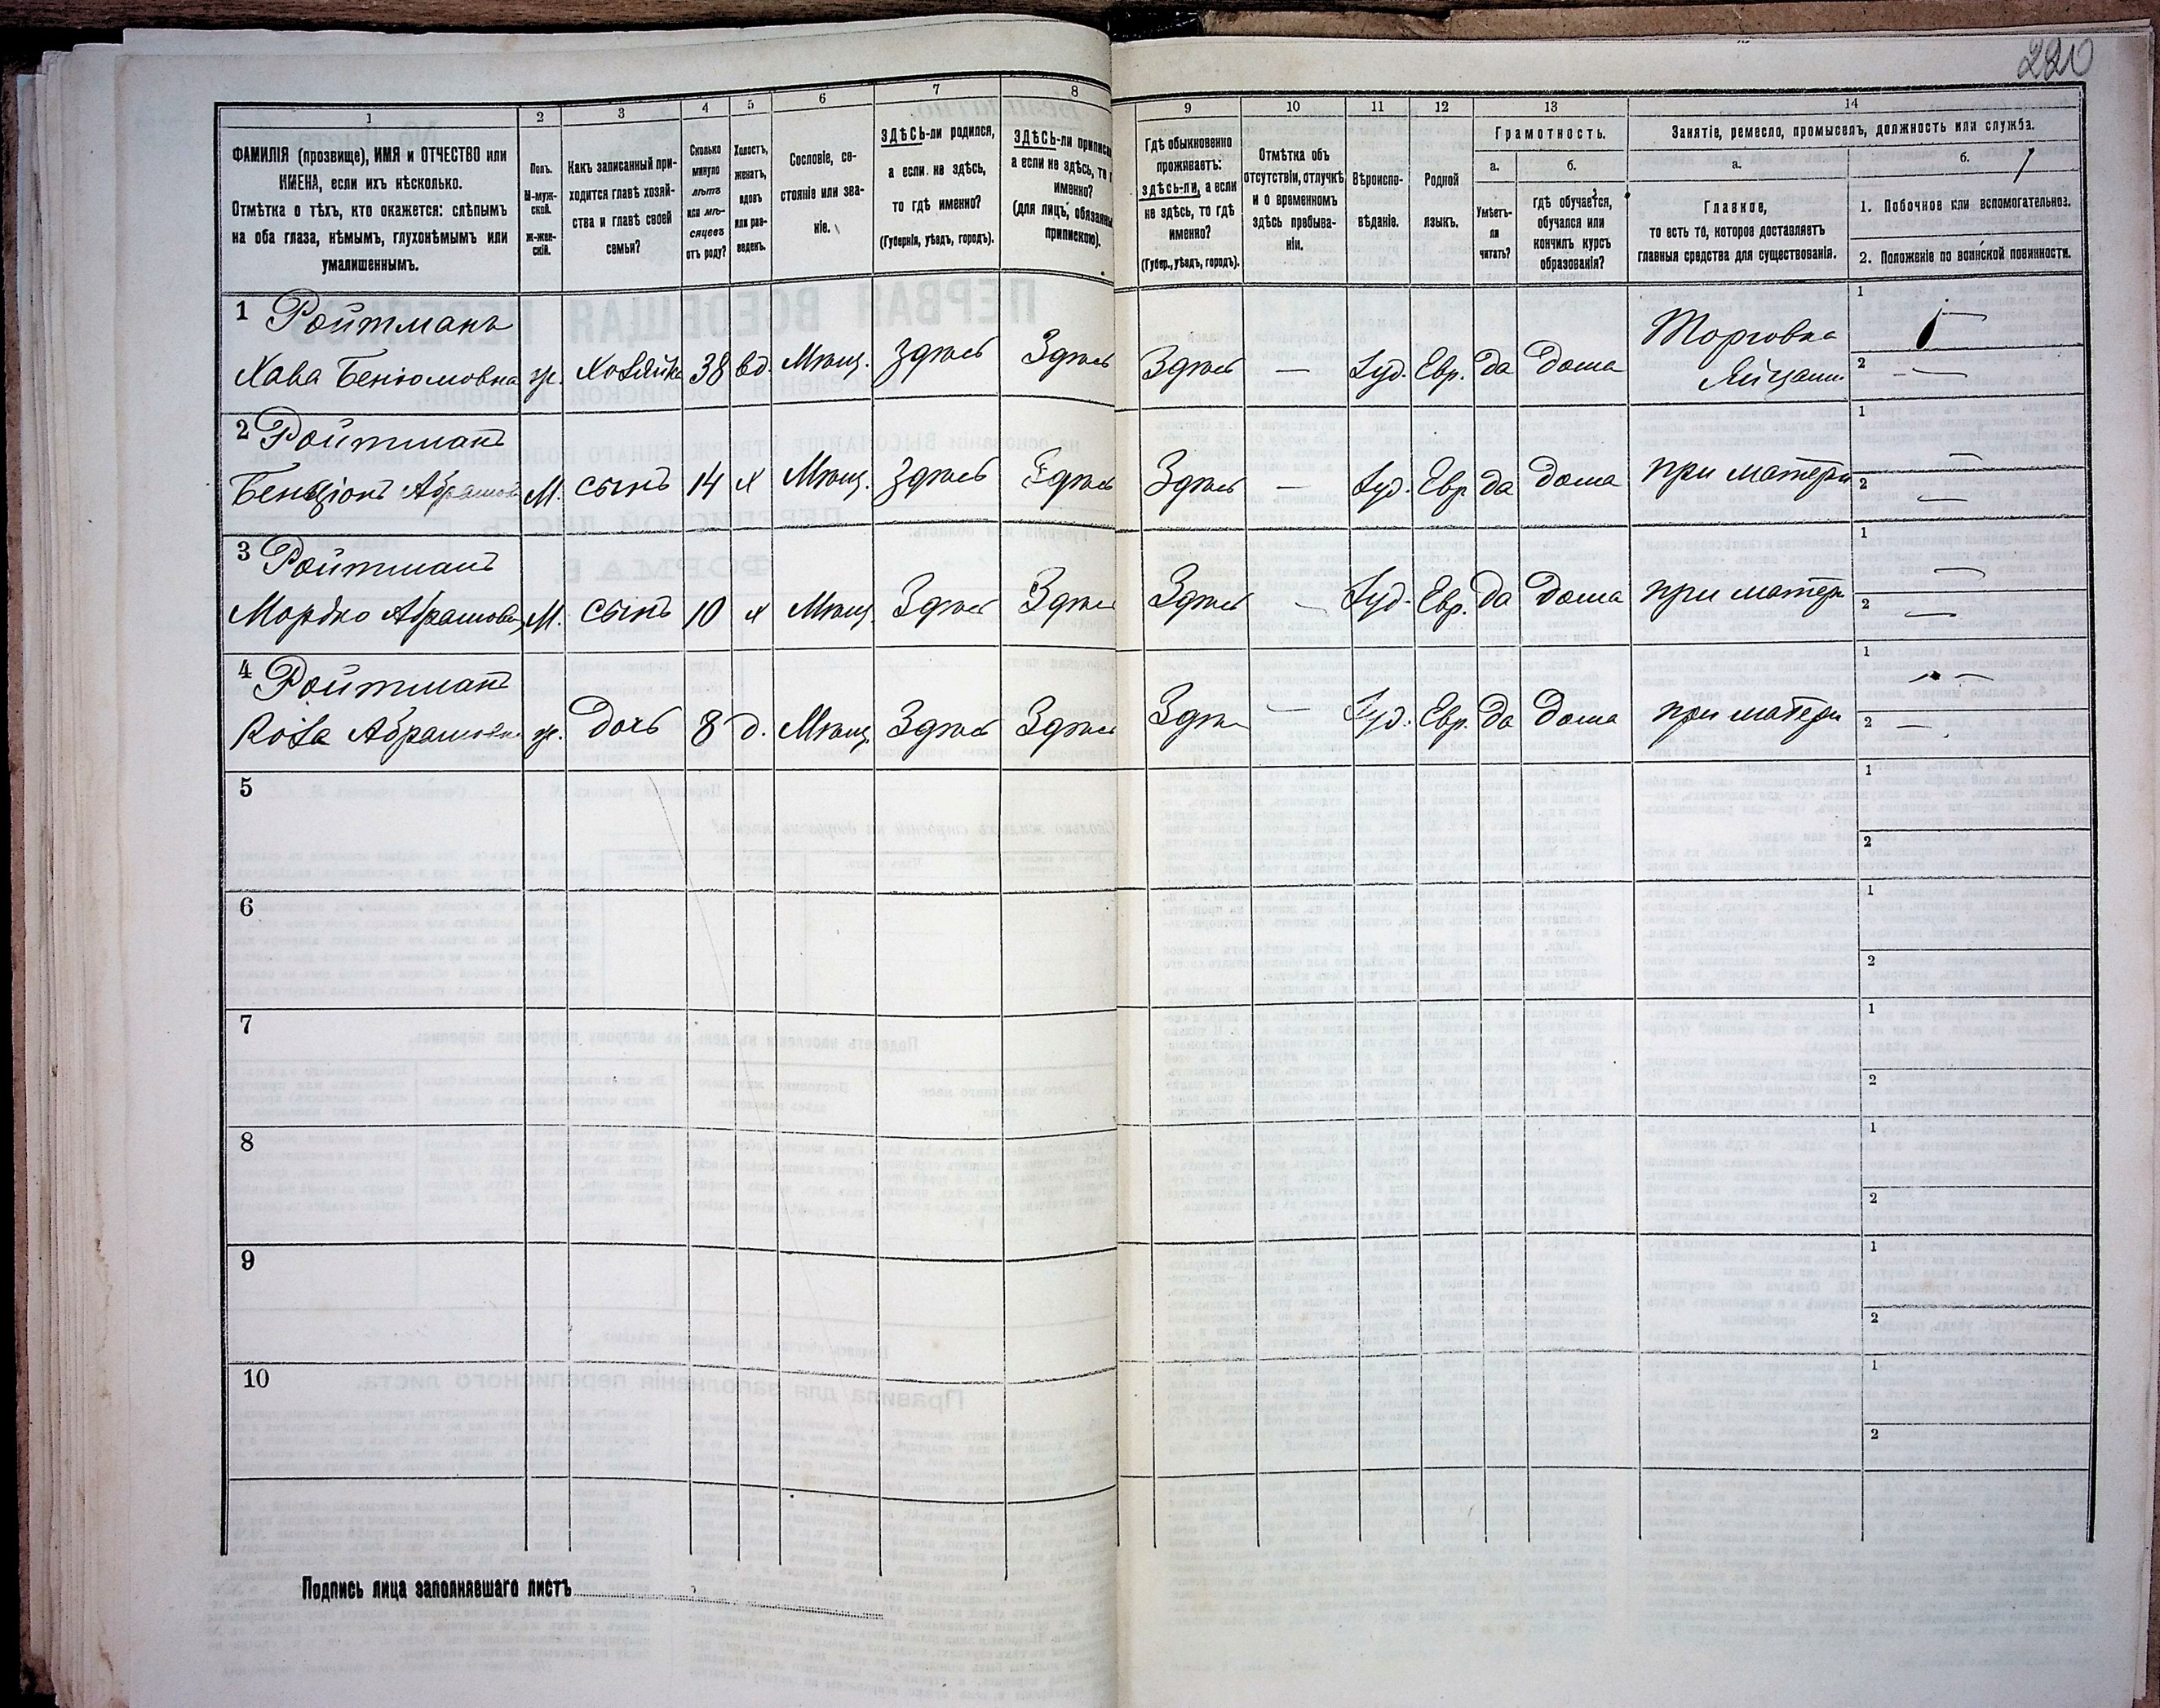 220
1
2
3
4
5
6
7
8
9
10
11
12
13
14
ФАМИЛІЯ (прозвище), ИМЯ и ОТЧЕСТВО или
ИМЕНА, если ихъ нѣсколько.
Отмѣтка о тѣхъ, кто окажется: слѣпымъ
на оба глаза, нѣмымъ, глухонѣмымъ или
умалишеннымъ.
Полъ.
М-муж-
ской.
Ж-жен-
скій.
Какъ записанный при-
ходится главѣ хозяй-
ства и главѣ своей
семьи?
Сколько
минуло
лѣтъ
или мѣ-
сяцевъ
отъ роду?
Холостъ,
женатъ,
вдовъ
или раз-
веденъ.
Сословіе, со-
стояніе или зва-
ніе.
ЗДѢСЬ-ли родился,
а если не здѣсь,
то гдѣ именно?
(Губернія, уѣздъ, городъ).
ЗДѢСЬ-ли
а если не здѣсь, то
именно?
(для лицъ,
припискою).
Гдѣ обыкновенно
проживаетъ:
здѣсь-ли, а если
не здѣсь, то гдѣ
именно?
(Губер., уѣздъ, городъ).
Отмѣтка объ
отсутствіи, отлучкѣ
и о временномъ
здѣсь пребыва-
ніи.
Вѣроиспо-
вѣданіе.
Родной
языкъ.
Грамотность.
а.
б.
Умѣетъ-
ли
читать?
гдѣ обучается,
обучался или
кончилъ курсъ
образованія?
Занятіе, ремесло, промыселъ, должность или служба.
а.
б.
Главное,
то есть то, которое доставляетъ
главныя средства для существованія.
1. Побочное или вспомогательное.
2. Положеніе по воинской повинности.
1 Ройтманъ Торговка 1
Хава Беніомовна ж. Хозяйка 38 вд. Мѣщ. Здѣсь Здѣсь Здѣсь — Іуд. Евр. да дома Яйцами 2 —
2 Ройтманъ 1 —
Бенціонъ М. сынъ 14 х Мѣщ. Здѣсь Здѣсь Здѣсь — Іуд. Евр да дома при матери 2 —
3 Ройтманъ 1 —
Мордко Абрамович М. сынъ 10 х Мѣщ. Здѣсь Здѣсь Здѣсь — Іуд. Евр. да дома при матери 2 —
4 Ройтманъ 1 —
Роза Абрамовна ж. дочь 8 д. Мѣщ. Здѣсь Здѣсь Здѣсь — Іуд. Евр. да дома при матери 2 —
5 1
2
6 1
2
7 1
2
8 1
2
9 1
2
10 1
2
Подпись лица заполнявшаго листъ